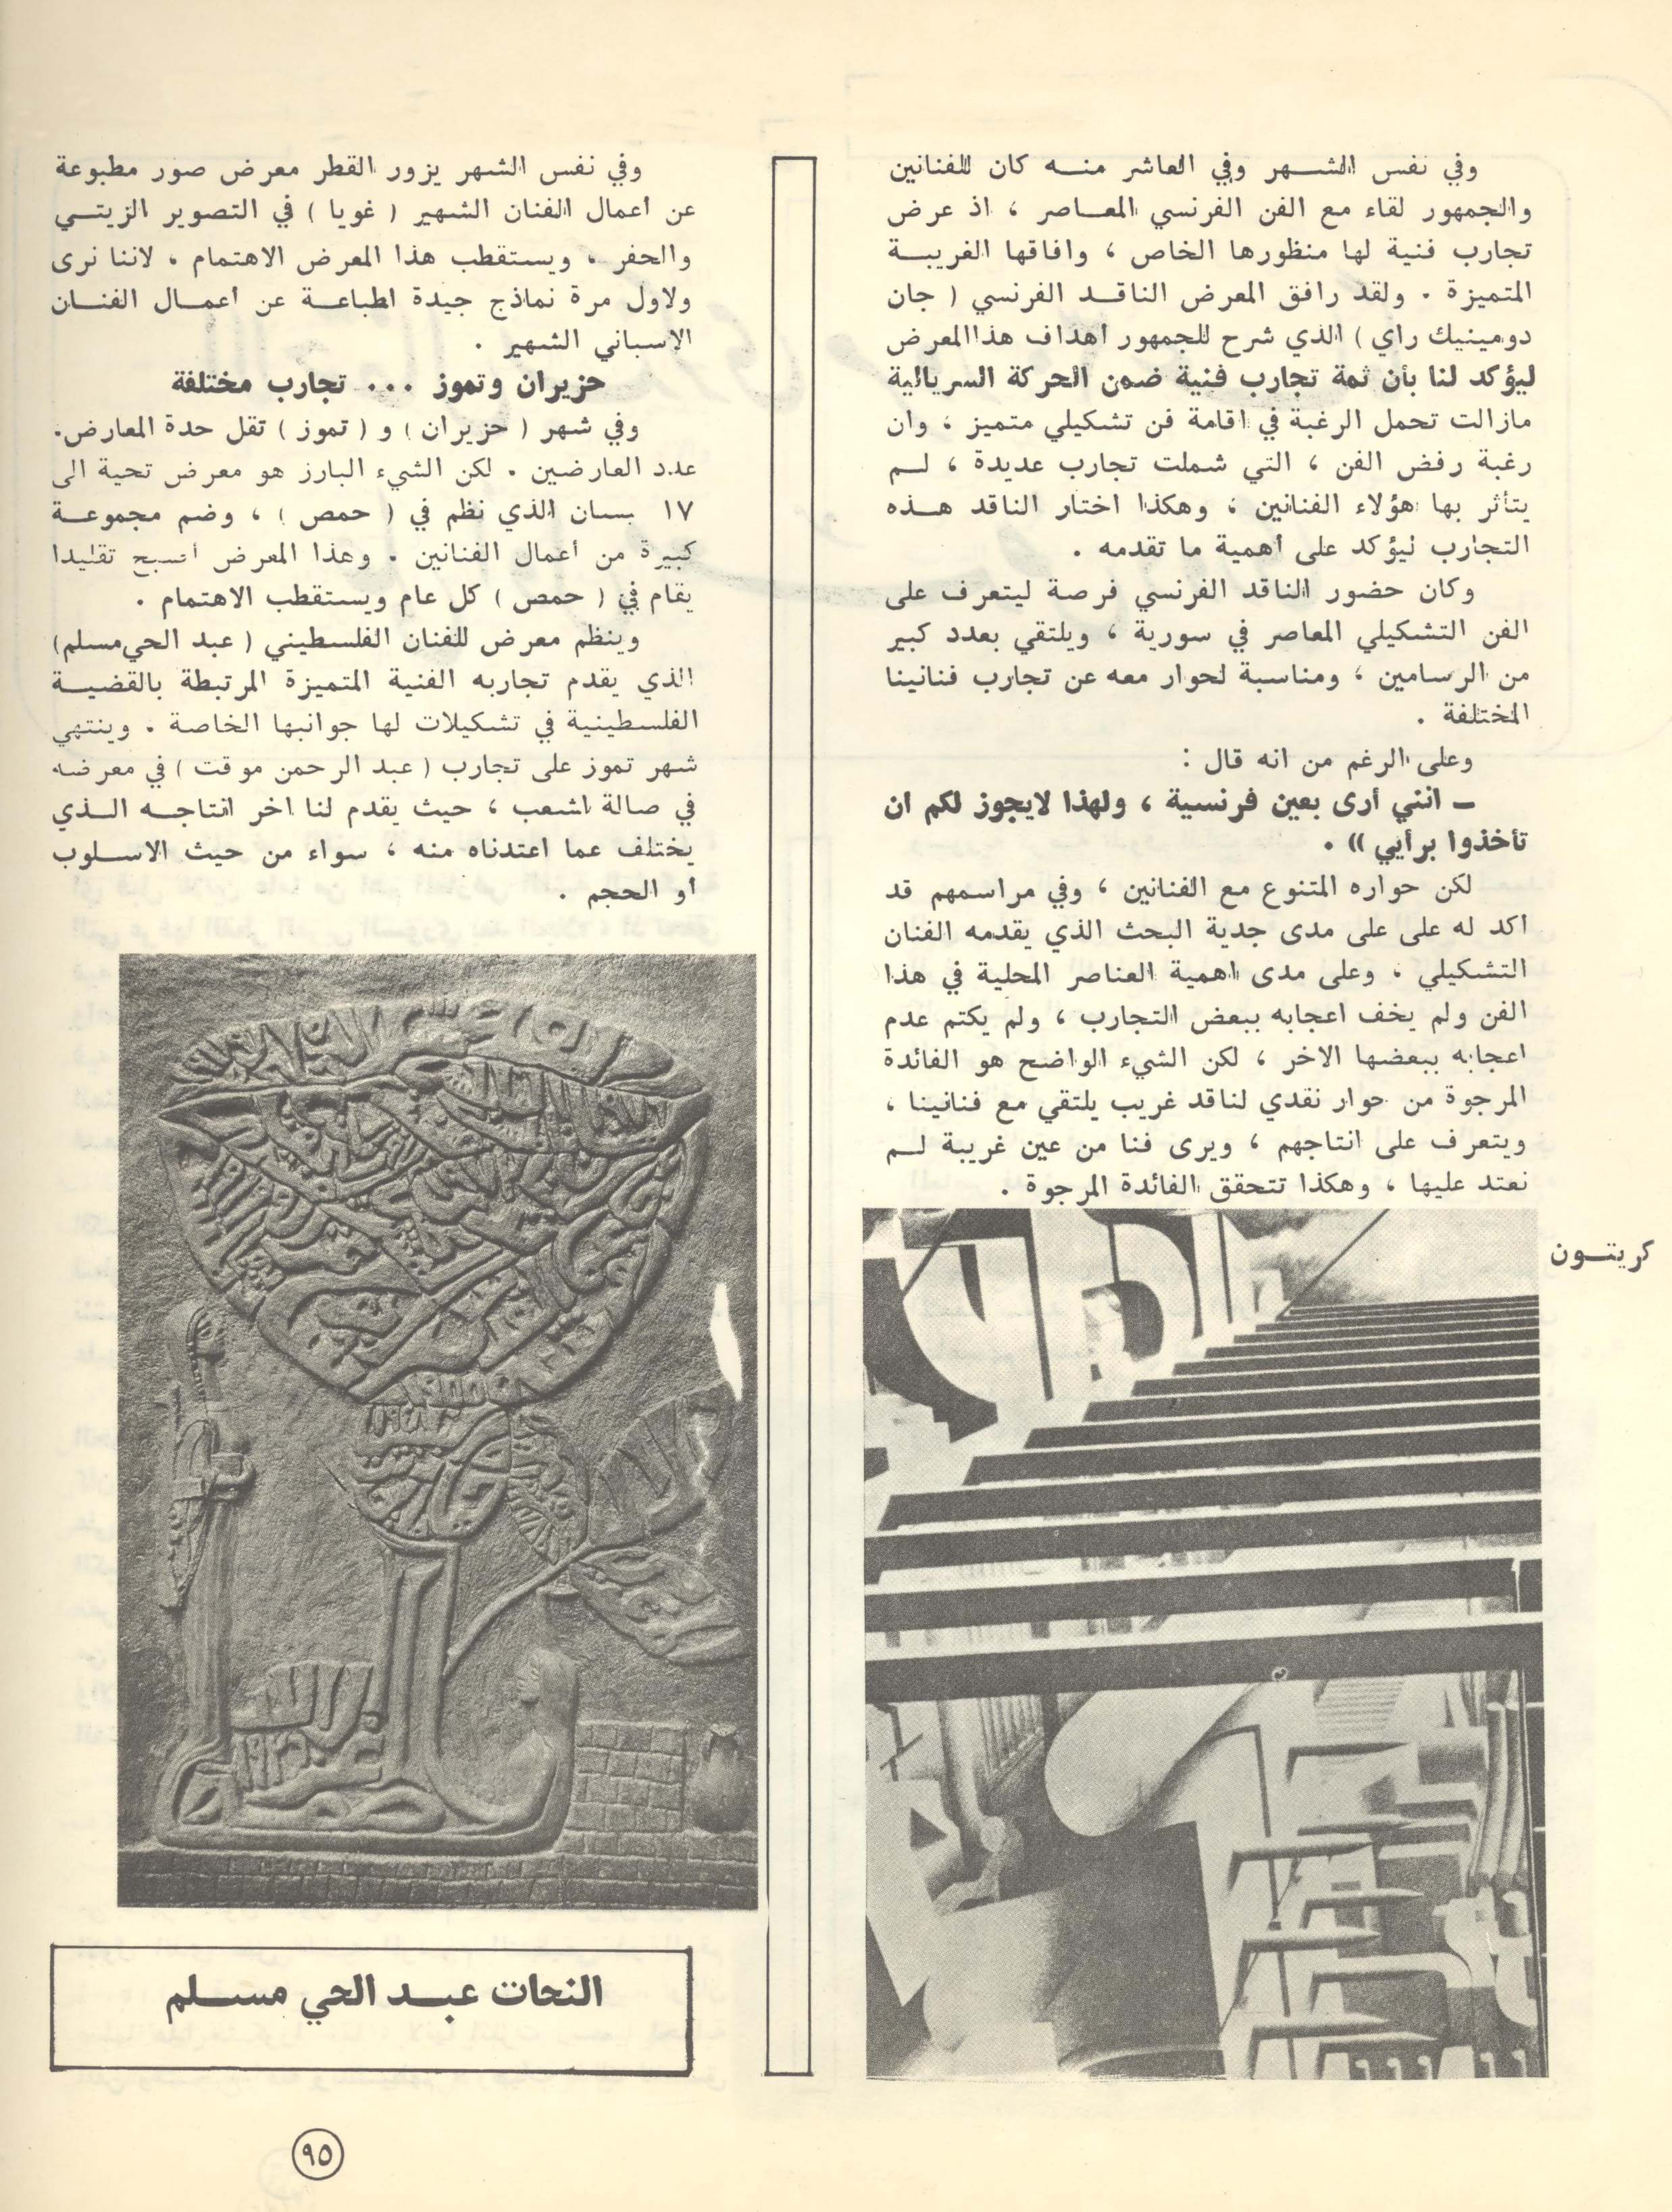 وفي نفس الشهر وفي العاشر منه كان للفنانين
والجمهور لقاء مع الفن الفرنسي المعاصر ، اذ عرض
تجارب فنية لها منظورها الخاص ، وافاقها الغريبة
المتميزة . ولقد رافق المعرض الناقد الفرنسي ( جان
دومينيك راي ) الذي شرح للجمهور اهداف هذا المعرض
ليؤكد لنا بأن ثمة تجارب فنية ضمن الحركة السريالية
مازالت تحمل الرغبة في اقامة فن تشكيلي متميز ، وان
رغبة رفض الفن ، التي شملت تجارب عديدة ، لم
يتأثر بها هؤلاء الفنانين ، وهكذا اختار الناقد هذه
التجارب ليؤكد على أهمية ما تقدمه .
وكان حضور الناقد الفرنسي فرصة ليتعرف على
الفن التشكيلي المعاصر في سورية ، ويلتقي بعدد كبير
من الرسامين ، ومناسبة لحوار معه عن تجارب فنانينا
المختلفة .
وعلى الرغم من انه قال :
ـ انني أرى بعين فرنسية ، ولهذا لايجوز لكم ان
تأخذوا برأيي )) .
لكن حواره المتنوع مع الفنانين ، وفي مراسمهم قد
اكد له على على مدى جدية البحث الذي يقدمه الفنان
التشكيلي ، وعلى مدى اهمية العناصر المحلية في هذا
الفن ولم يخف اعجابه ببعض التجارب ، ولم يكتم عدم
اعجابه ببعضها الاخر ، لكن الشيء الواضح هو الفائدة
المرجوة من حوار نقدي لناقد غريب يلتقي مع فنانينا ،
ويتعرف على انتاجهم ، ويرى فنا من عين غريبة لم
نعتد عليها ، وهكذا تتحقق الفائدة المرجوة .
كريتون
وفي نفس الشهر يزور القطر معرض صور مطبوعة
عن أعمال الفنان الشهير ( غويا ) في التصوير الزيتي
والحفر ، ويستقطب هذا المعرض الاهتمام ، لاننا نرى
ولاول مرة نماذج جيدة اطباعة عن اعمال الفنان
الاسباني الشهير .
حزيران وتموز ... تجارب مختلفة
وفي شهر ( حزيران ) و ( تموز ) تقل حدة المعارض.
عدد العارضين . لكن الشيء البارز هو معرض تحية الى
١٧ الذي نظم في ( حمص ) ، وضم مجموعة
كبيرة من أعمال الفنانين . وهذا المعرض أصبح تقليدا
يقام في ( حمص ) كل عام ويستقطب الاهتمام .
وينظم معرض للفنان الفلسطيني ( عبد الحي مسلم)
الذي يقدم تجاربه الفنية المتميزة المرتبطة بالقضية
الفلسطينية في تشكيلات لها جوانبها الخاصة . وينتهي
شهر تموز على تجارب ( عبد الرحمن موقت ) في معرضه
في صالة اشعب ، حيث يقدم لنا اخر انتاجه الذي
يختلف عما اعتدناه منه ، سواء من حيث الاسلوب
أو الحجم .
النحات عبد الحي مسلم
٩٥